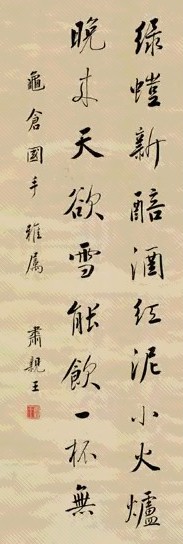 綠螘新醅酒紅泥小火爐
晚來天欲雪能飲一杯無
龜倉國手雅属
肅親王